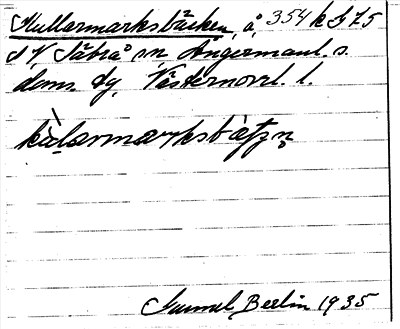 Kullarmarksbäcken, å, 354 k S 75
N V, Säbrå sn, Ångermanl. s.
doms. dg, Västernorrl. l.
kùlarmarksbàtʃn̥
Gunnel Berlin 1935